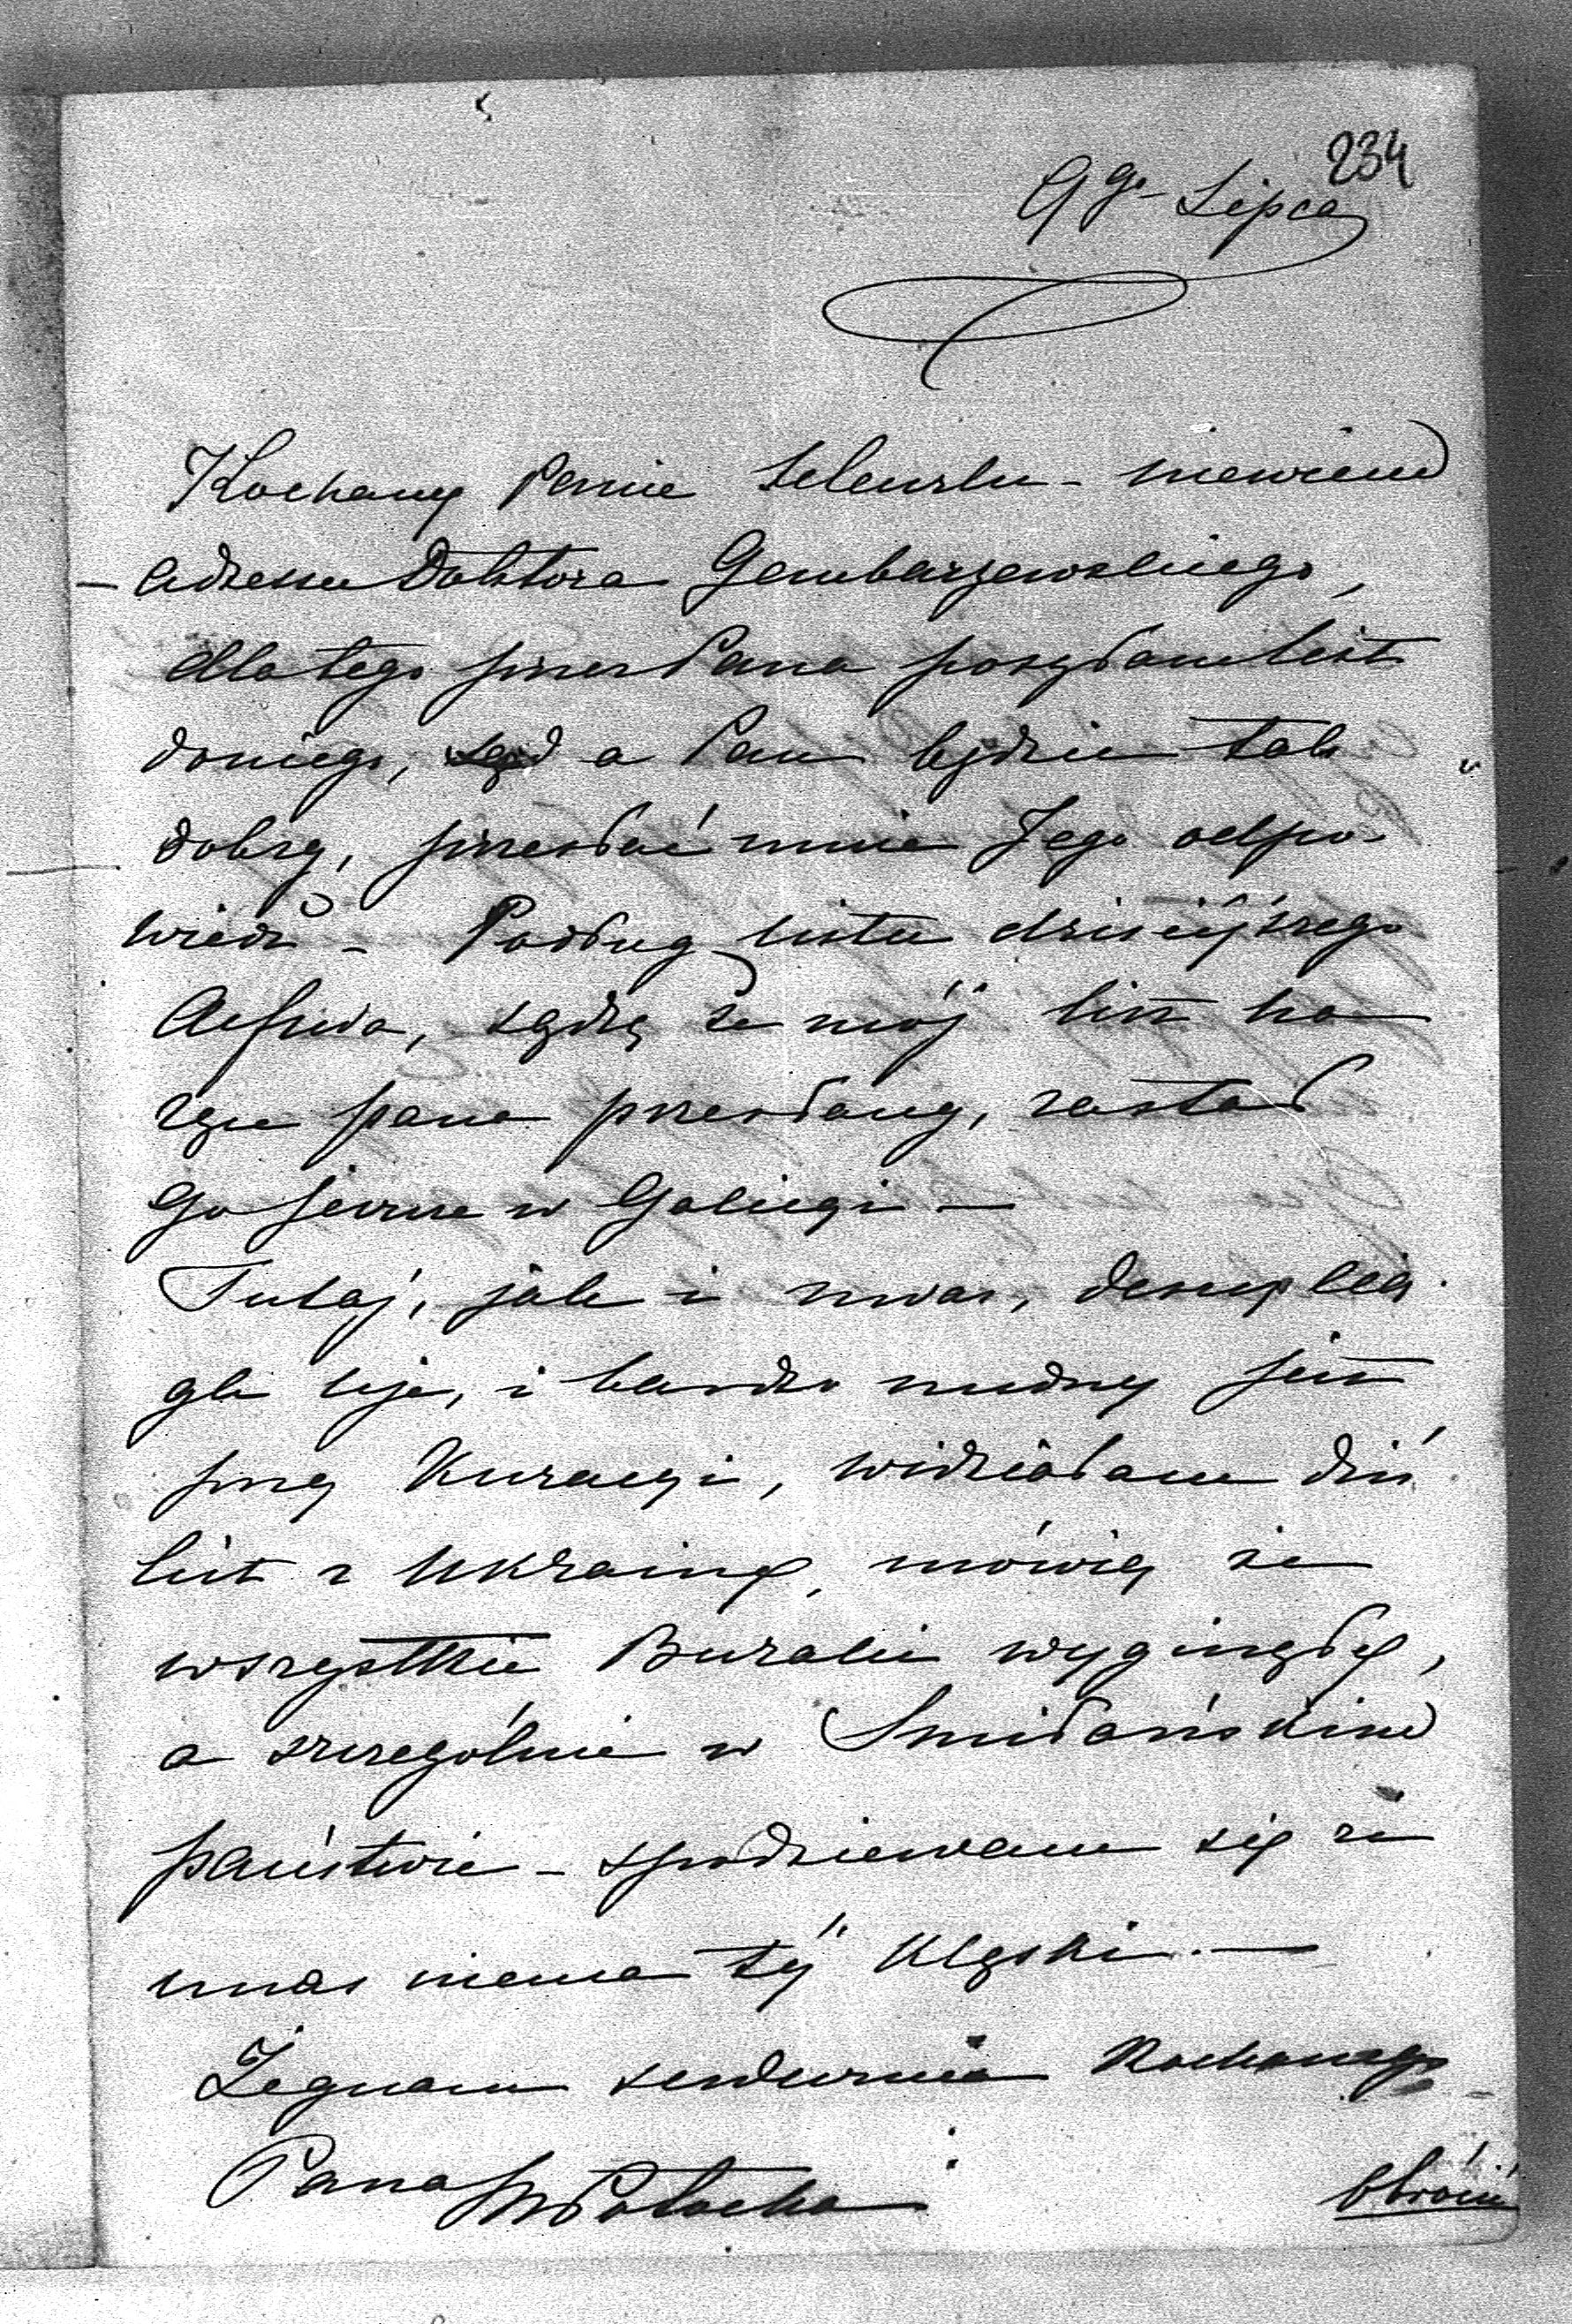 234
9go Lipca
Kochany Panie niewiem
adressu Doktora Gembarzewskiego,
dlatego przez Pana posyłam list
doniego, a Pan będzie tak
dobry, przesłać mnie Jego odpo-
wiedź - Podług listu dzisiéjszego
Alfreda, sądzę że mój list na
ręce pana przesłany, zastał
go jeszcze w Galicyi —
Tutaj, jak i u was, deszcz cią-
gle leje, i bardzo nudny jest
przy Kuracyi, widziałam dziś
list z Ukrainy, mówią że
wszystkie Buraki wyginęły,
a szczególnie w Śmiłańskim
państwie - spodziewam się że
unas niema téj Klęski. —
Żegnam serdecznie Kochanego
Pana MPotocka
obrócić